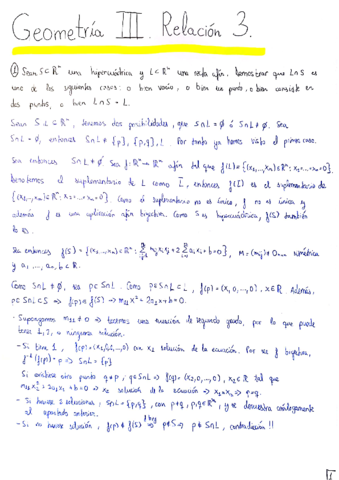 Geometría III. Relación 3.
① Sean S⊂ℝⁿ una hipercuádrica y L⊂ℝⁿ una recta afín. Demostrar que L∩S es
uno de los siguientes casos: o bien vacío, o bien un punto, o bien consiste en
dos puntos, o bien L∩S = L.
Sean S, L ⊂ ℝⁿ, tenemos dos posibilidades, que S∩L = ∅ ó S∩L ≠ ∅. Sea
S∩L = ∅, entonces S∩L ≠ {p}, {p,q}, L. Por tanto ya hemos visto el primer caso.
Sea entonces S∩L ≠ ∅ Sea f: ℝⁿ→ℝⁿ afín tal que f(L) = {(x₁,...,xₙ)∈ℝⁿ: x₂=...=xₙ=0}.
Denotemos el suplementario de L como L̄, entonces f(L̄) es el suplementario de
{(x₁,...,xₙ)∈ℝⁿ: x₂=...=xₙ=0} Como el suplementario no es único, f no es única y
además f es una aplicación afín biyectiva. Como S es hipercuádrica, f(S) también
lo es.
Sea entonces f(S) = {(x₁,...,xₙ)∈ℝⁿ: Σ mᵢⱼ xᵢ xⱼ + 2 Σ aᵢ xᵢ + b = 0}, M = (mᵢⱼ) ≠ 0ₙₓₙ simétrica
y a₁, ..., aₙ, b ∈ ℝ.
Como S∩L ≠ ∅, sea p∈S∩L. Como p∈S∩L ⊂ L, f(p) = (x, 0, ..., 0), x∈ℝ Además,
p∈S∩L⊂S ⟹ f(p)∈f(S) ⟹ m₁₁x² + 2a₁x + b = 0.
- Supongamos m₁₁ ≠ 0 ⟹ tenemos una ecuación de segundo grado, por lo que puede
tener 1, 2, o ninguna solución.
- Si tiene 1, f(p) = (x₁, 0, ..., 0) con x₁ solución de la ecuación. Por ser f biyectiva,
f⁻¹(f(p)) = p ⟹ S∩L = {p}
Si existiese otro punto q≠p, q∈S∩L ⟹ f(q) = (x₂, 0, ..., 0), x₂∈ℝ tal que
m₁₁x₂² + 2a₁x₂ + b = 0 ⟹ x₂ solución de la ecuación ⟹ x₂ = x₁ ⟹ p = q.
- Si tuviese 2 soluciones, S∩L = {p,q}, con p≠q, p,q∈ℝⁿ, y se demuestra análogamente
al apartado anterior.
- Si no tuviese solución, f(p)∉f(S) ⟹ p∉S ⟹ p∉S∩L, contradicción!!
1